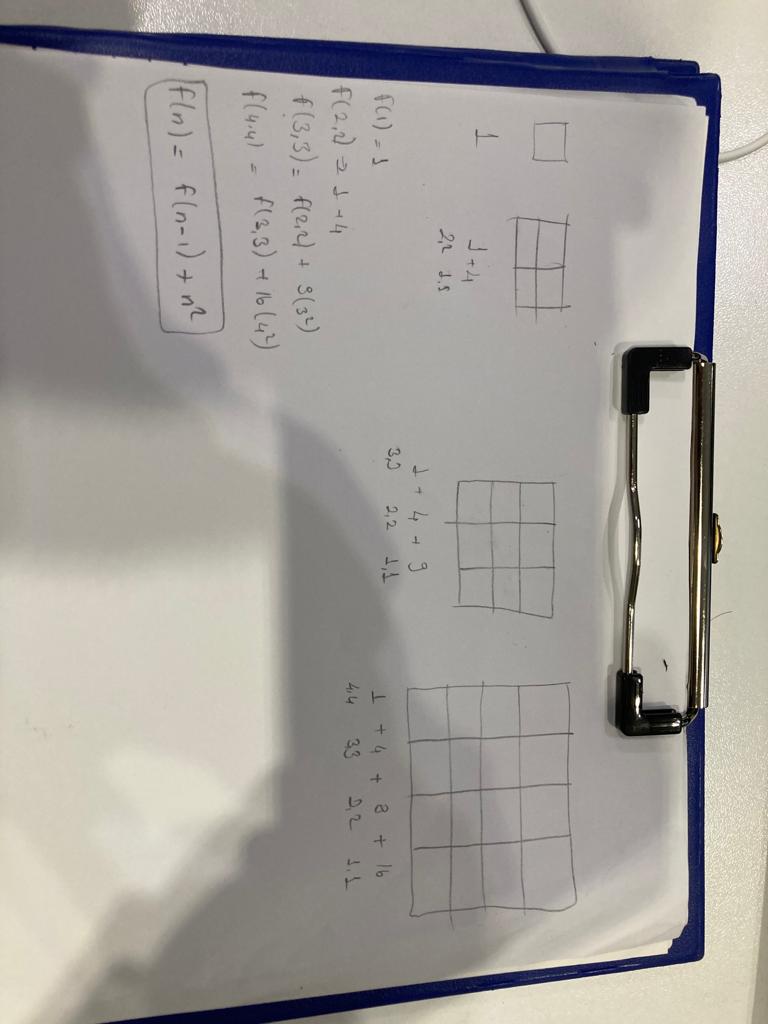 1
1 + 4
2,2 1,1
1 + 4 + 9
3,3 2,2 1,1
1 + 4 + 9 + 16
4,4 3,3 2,2 1,1
f(1) = 1
f(2,2) → 1 + 4
f(3,3) = f(2,2) + 9(3²)
f(4,4) = f(3,3) + 16(4²)
f(n) = f(n-1) + n²